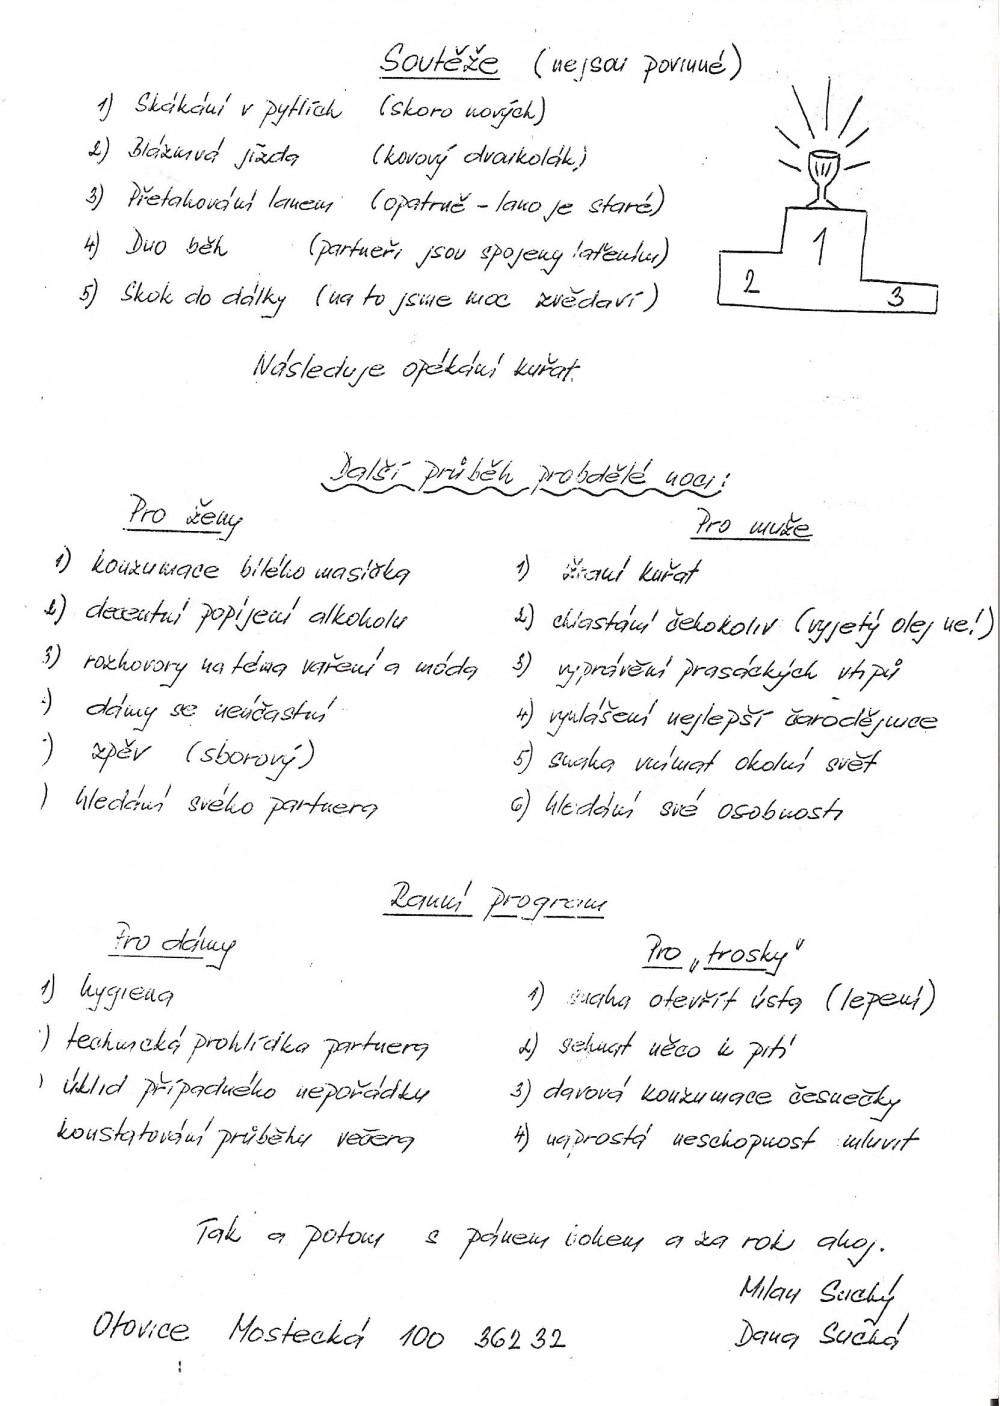 Soutěže (nejsou povinné)
1) Skákání v pytlích (skoro nových)
2) Bláznivá jízda (kovový dvoukolák)
3) Přetahování lanem (opatrně - lano je staré)
4) Duo běh (partneři jsou spojeny
5) Skok do dálky (na to jsme moc zvědaví)
1
2
3
Následuje opékání kuřat.
Další průběh probdělé noci:
Pro ženy
1) konzumace bílého masíčka
2) decentní popíjení alkoholu
3) rozhovory na téma vaření a móda
) dámy se neúčastní
) zpěv (sborový)
) hledání svého partnera
Pro muže
1) žraní kuřat
2) chlastání čehokoliv (vyjetý olej ne!)
3) vyprávění prasáckých vtipů
4) vyhlášení nejlepší čarodějnice
5) snaha vnímat okolní svět
6) hledání své osobnosti
Ranní program
Pro dámy
1) hygiena
) technická prohlídka partnera
) úklid případného nepořádku
konstatování průběhu večera
Pro „trosky"
1) snaha otevřít ústa (lepení)
2) sehnat něco k pití
3) davová konzumace česnečky
4) naprostá neschopnost mluvit
Tak a potom s pánem bohem a za rok ahoj.
Milan Suchý
Dana Suchá
Otovice Mostecká 100 362 32